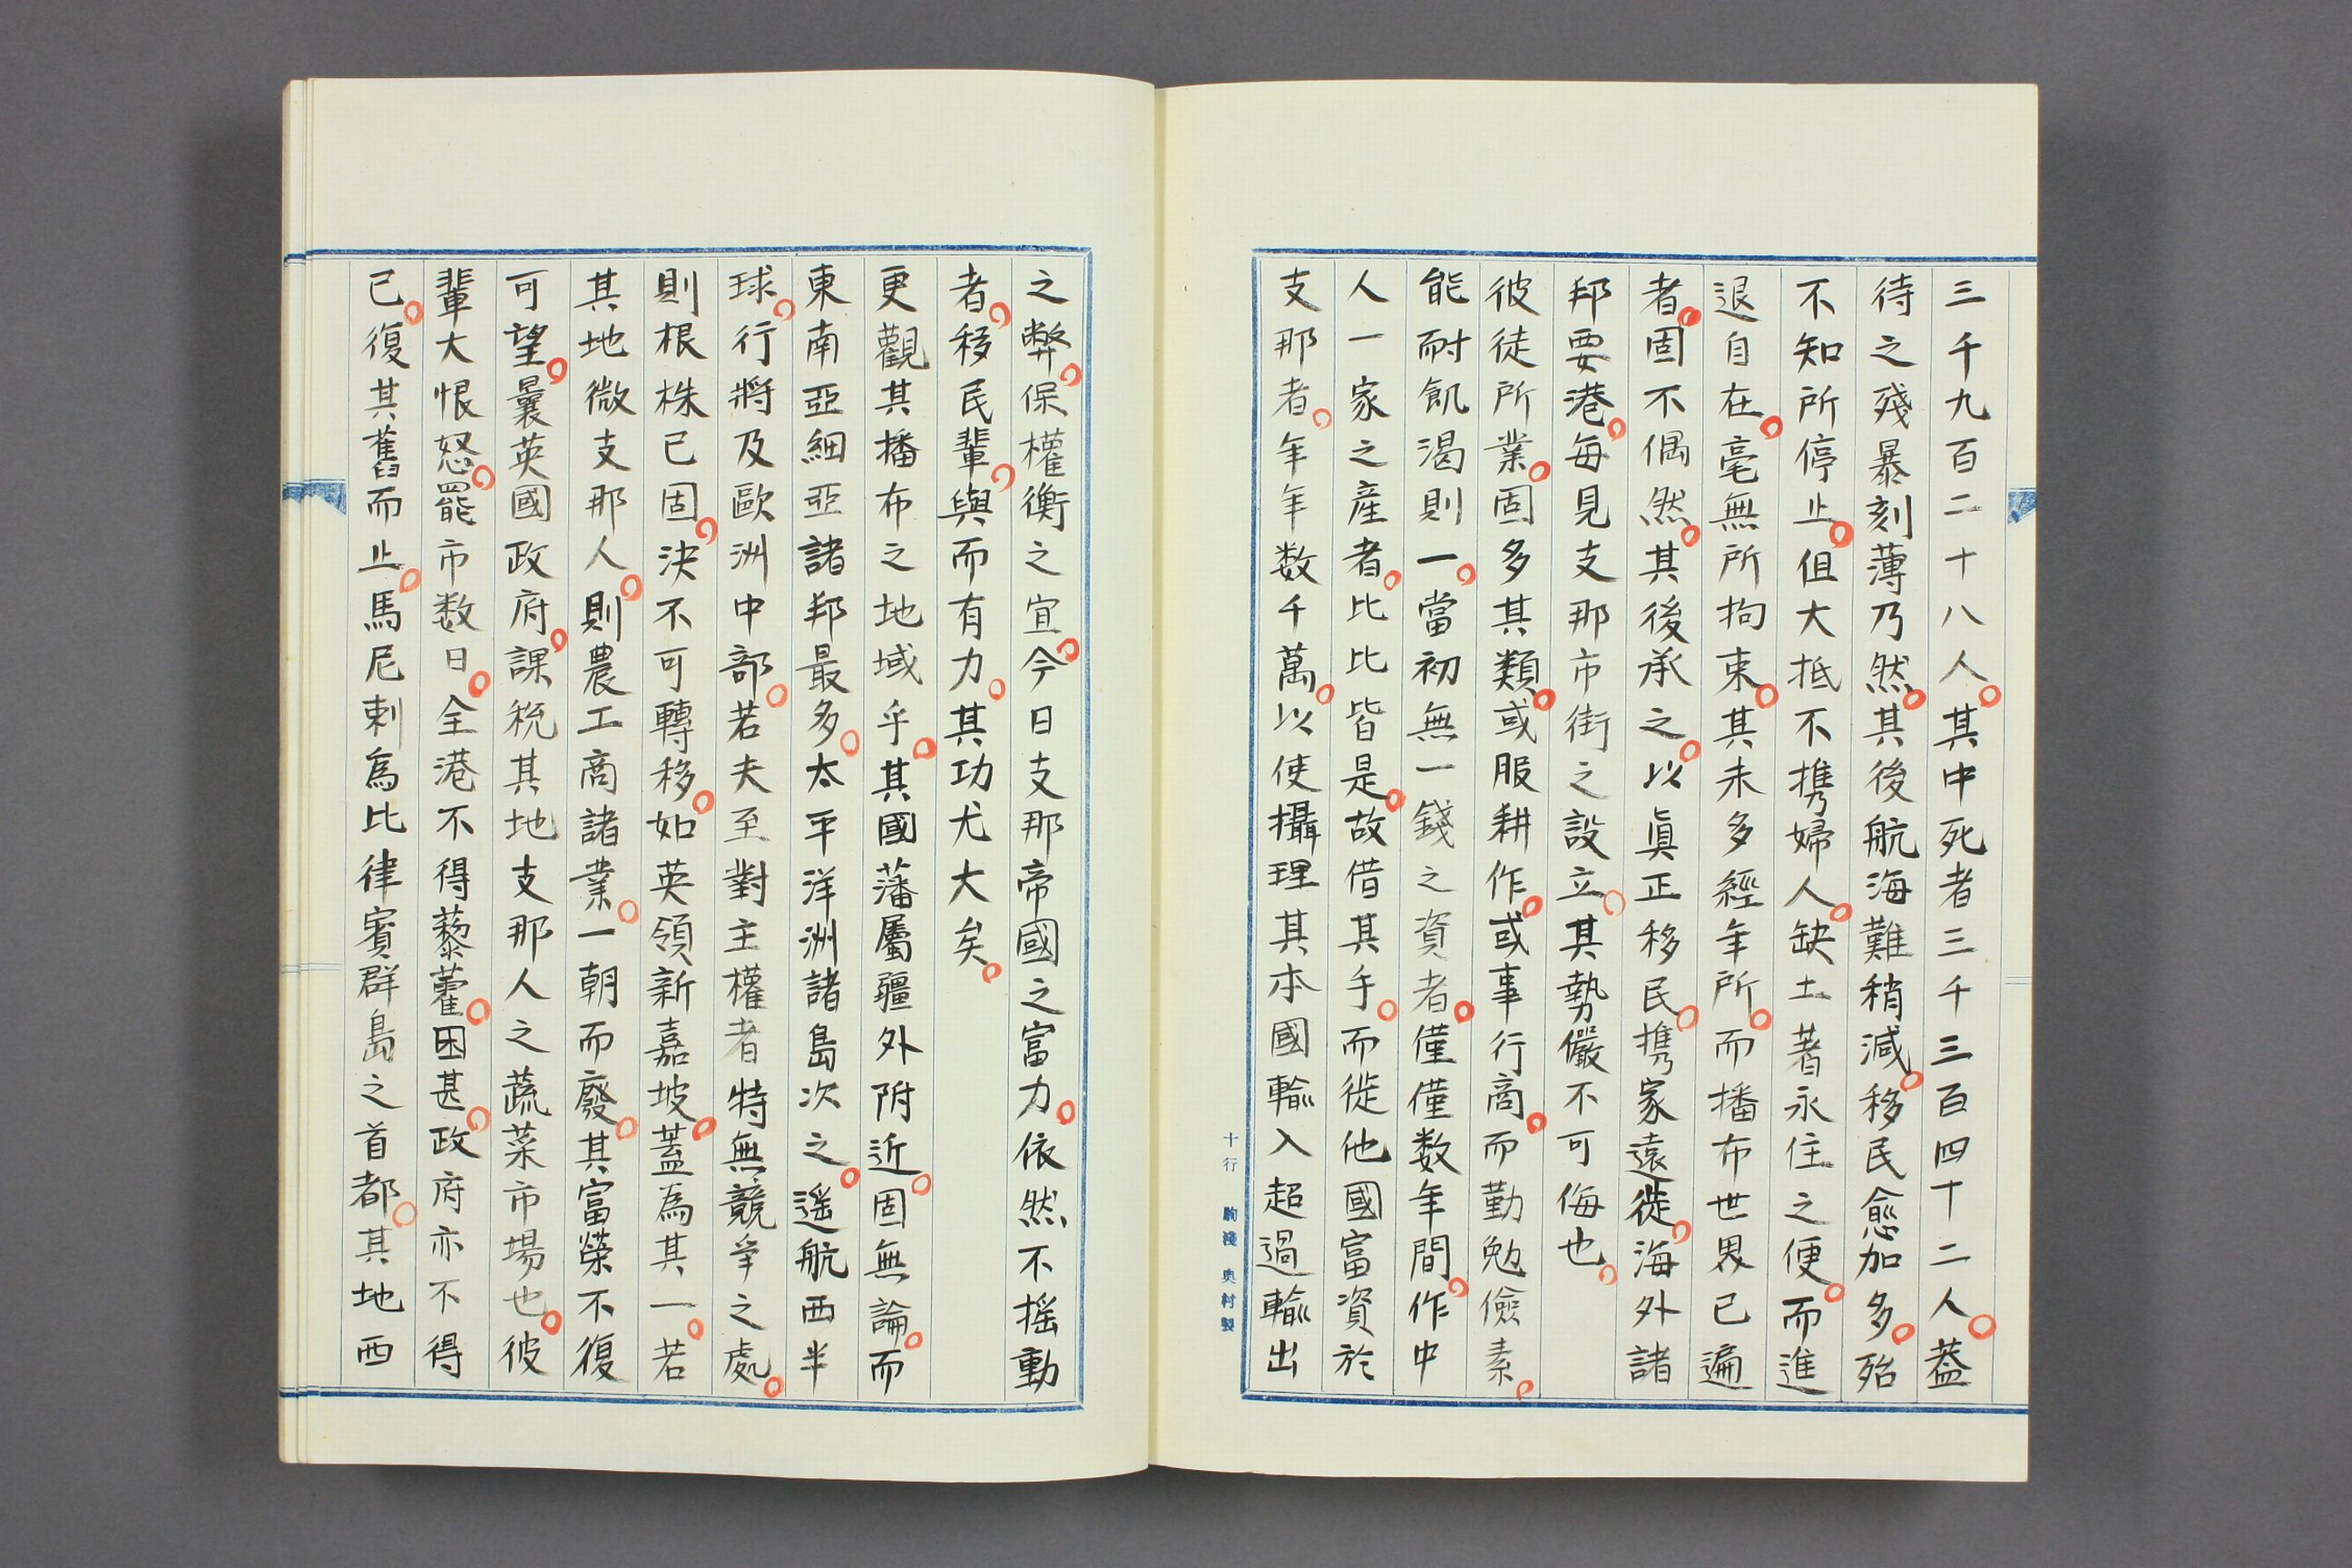 三千九百二十八人。其中死者三千三百四十二人。蓋
待之殘暴刻薄乃然。其後航海難稍減。移民愈加多。殆
不知所停止。但大抵不携婦人。缺土著永住之便。而進
退自在。毫無所拘束。其未多經年所。而播布世界已遍
者。固不偶然。其後承之。以眞正移民。携家遠徙。海外諸
邦要港。每見支那市街之設立。其勢儼不可侮也。
彼徒所業。固多其類。或服耕作。或事行商。而勤勉儉素。
能耐飢渴則一。當初無一錢之資者。僅僅数年間。作中
人一家之産者。比比皆是。故借其手。而徙他國富資於
支那者。年年数千萬。以使攝理其本國輸入超過輸出
十行 駒淺 奥村製
之弊。保權衡之宜。今日支那帝國之富力。依然不搖動
者。移民輩。與而有力。其功尤大矣。
更觀其播布之地域乎。其國藩屬疆外附近。固無論。而
東南亞細亞諸邦最多。太平洋洲諸島次之。遥航西半
球。行將及歐洲中部。若夫至對主權者特無競爭之處。
則根株已固。決不可轉移。如英領新嘉坡。蓋為其一。若
其地微支那人。則農工商諸業。一朝而廢。其富榮不復
可望。曩英國政府。課税其地支那人之蔬菜市場也。彼
輩大恨怒。罷市数日。全港不得藜藿。困甚。政府亦不得
已。復其舊而止。馬尼剌爲比律賓群島之首都。其地西